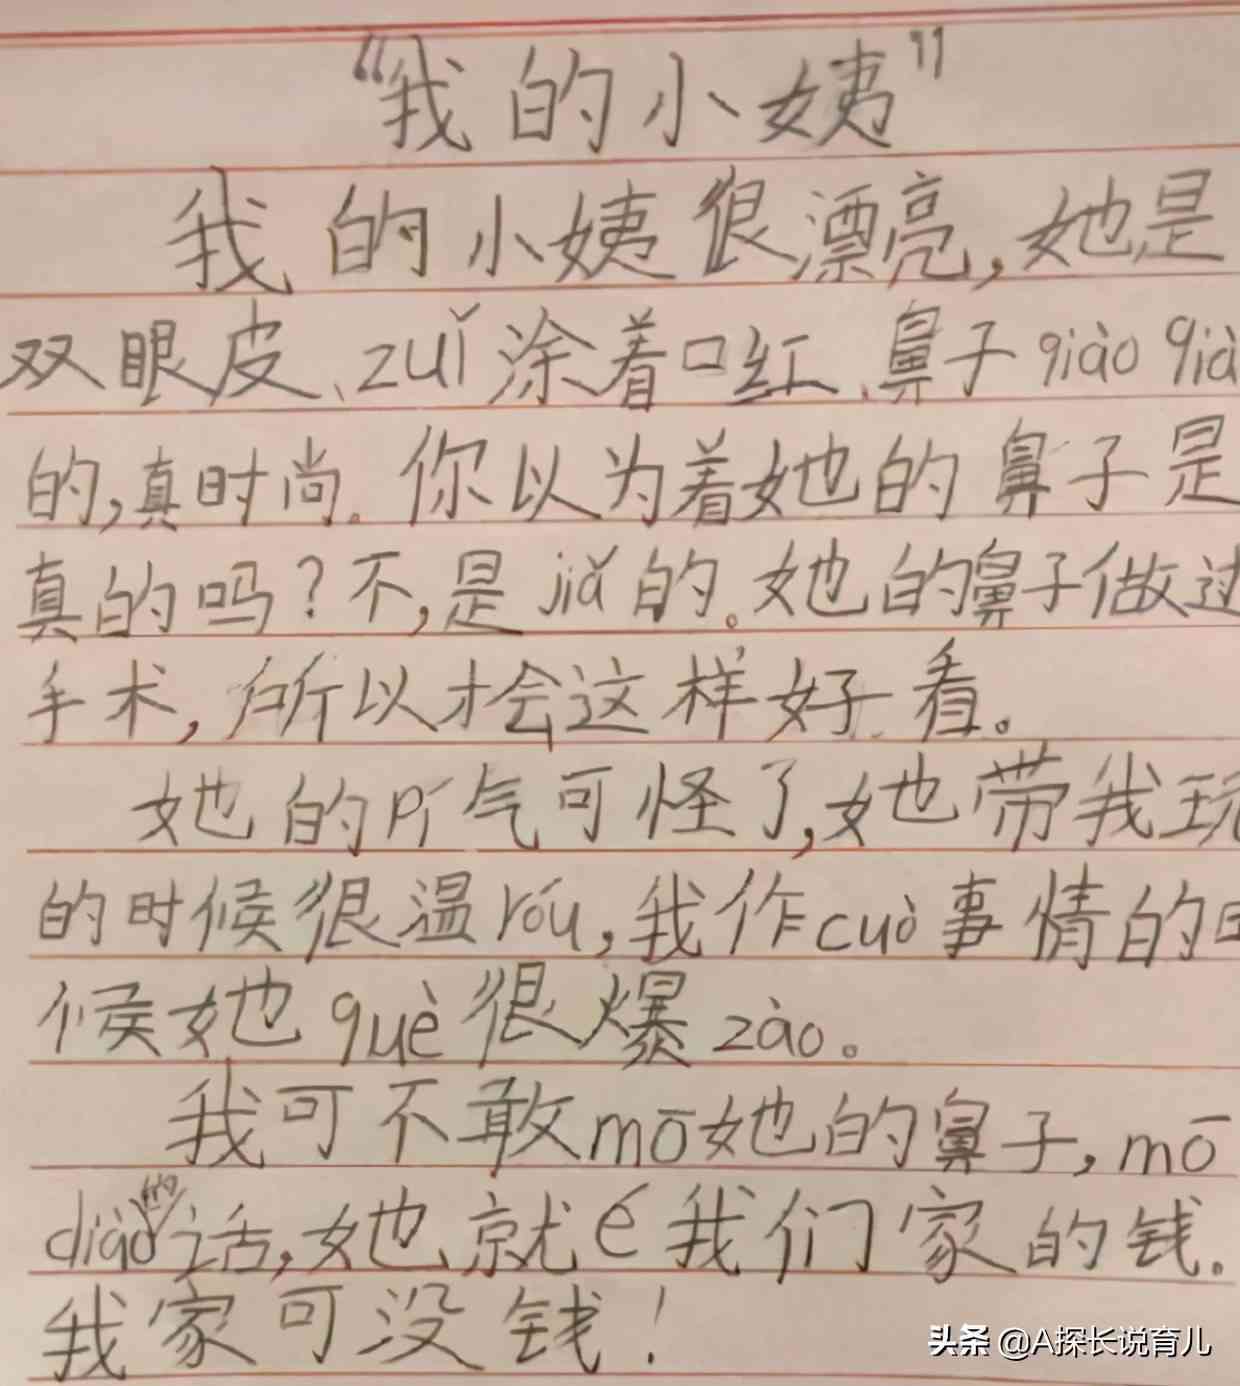 “我的小姨”
我的小姨很漂亮,她是
双眼皮、zuǐ涂着口红、鼻子qiào qià
的,真时尚。你以为着她的鼻子是
真的吗?不,是jiǎ的。她的鼻子做过
手术,所以才会这样好看。
她的pí气可怪了,她带我玩
的时候很温róu,我作cuò事情的
候她què很爆zào。
我可不敢mō她的鼻子,mō
diào的话,她就é我们家的钱。
我家可没钱!
头条 @A探长说育儿